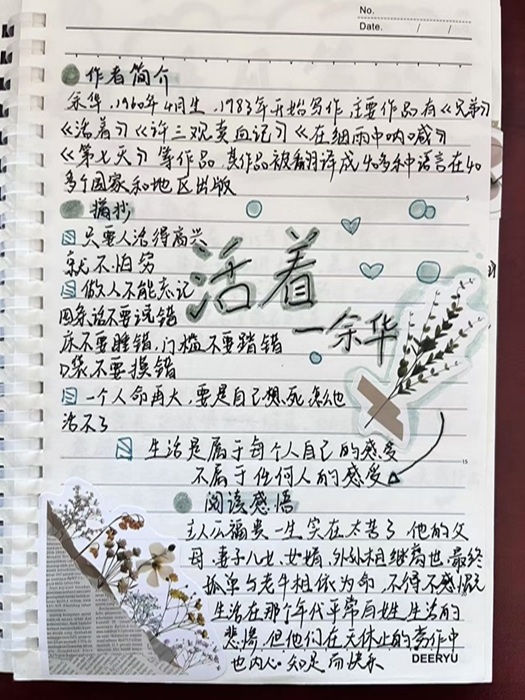 No.
Date. / /
作者简介
余华，1960年4月生，1983年开始写作，主要作品有《兄弟》
《活着》《许三观卖血记》《在细雨中呐喊》
《第七天》等作品 其作品被翻译成40多种语言在40
多个国家和地区出版
摘抄
只要人活得高兴
就不怕穷
做人不能忘记
四条话不要说错
床不要睡错，门槛不要踏错
口袋不要摸错
一个人命再大，要是自己想死 怎么也
活不了
活着
—余华
生活是属于每个人自己的感受
不属于任何人的感受
阅读感悟
主人公福贵一生实在太苦了 他的父
母、妻子儿女、女婿，外孙相继离世 最终
孤单与老牛相依为命 不得不感慨
生活在那个年代平常百姓生活的
悲惨 但他们在无休止的劳作中
也内心知足而快乐
DEERYU
5
15